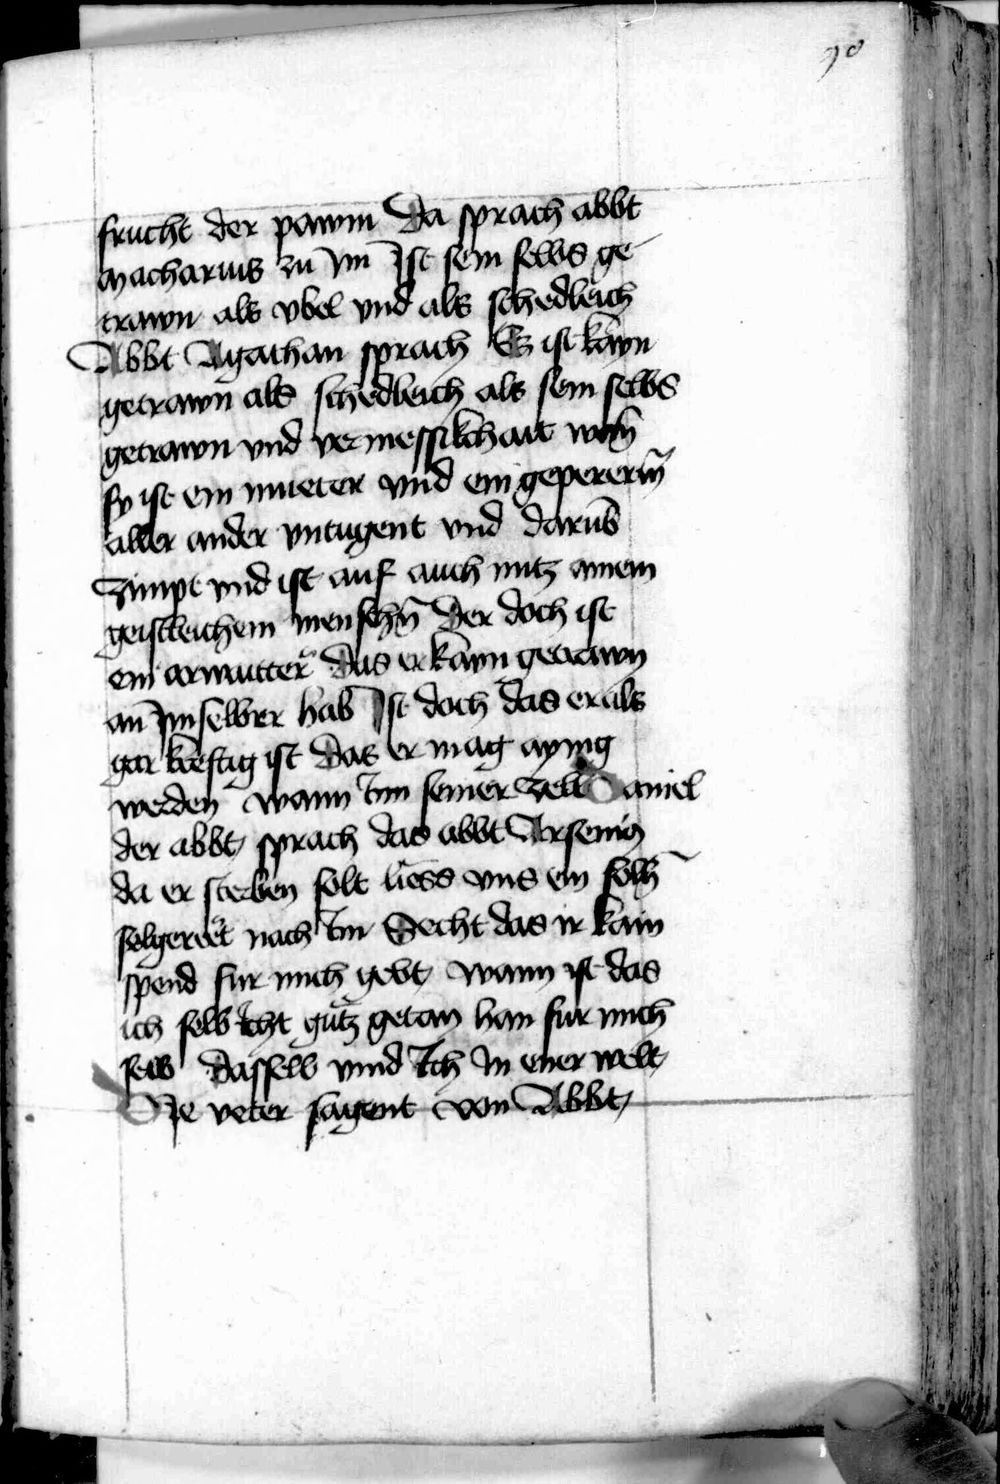 90
frucht der pawm Da sprach abbt
Macharius zu ym Ist sein selbs ge
trawn als vbel vnd als schedleich
Abbt Agathan sprach Es ist kayn
getrawn als schedleich als sein selbs
getrawn vnd vermessikchait wan̄
sy ist ein mueter vnd ein gepererin̄
aller ander vntugent vnd darūb
zimpt vnd ist auf auch nutz ainem
geistleichem menschn̄ der doch ist
ein arwaitter das er kayn getrawn
an Im selber hab Ist doch das er als
gar kreftig ist das er mag aynig
werden wann Inn seiner zell Daniel
der abbt sprach das abbt Arsenius
da er sterben solt liess vns ein solh̄
selgerēt nach Im Secht das ir kain
spend fur mich gebt wann ist das
ich selb icht gutz getan han fur mich
selb dasselb vind Ich In ener welt
Die veter sagent von Abbt